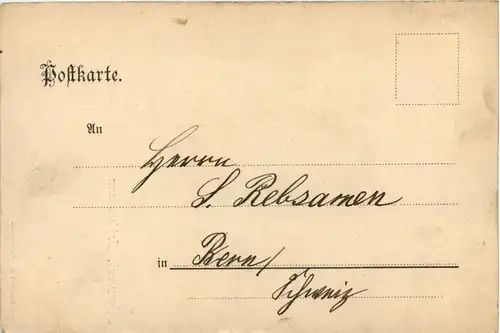 Postkarte.
An
Herrn
S. Rebsamen
in Bern/
Schweiz